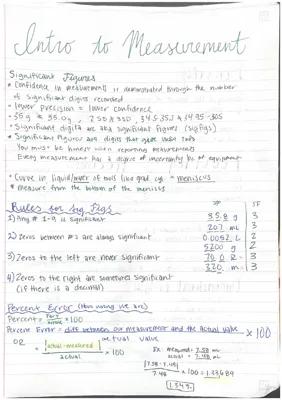 Intro to Measurement
Significant Figures
• Confidence in measurements is demonstrated through the number
of significant digits recorded
• lower precision = lower confidence
• Significant digits are aka significant figures (sigfigs)
• Significant Figures are digits that
You must be honest when reporting measurements
Every measurement has a degree of uncertainty bc of equipment
• Curve in liquid of tools like grad. cyl. = meniscus
* measure from the bottom of the meniscus
Rules for Sig Figs
SF
1) Any # 1-9 is significant
35.8 g 3
207 mL 3
2) Zeros between #s are always significant
0.0052 L 2
5200 g 2
3) Zeros to the left are never significant
3
4) Zeros to the right are sometimes significant
320. m 3
(if there is a decimal)
Percent Error (How wrong we are)
Percent = Part/whole × 100
Percent Error = diff between our measurement and the actual value / actual value × 100
OR = |actual-measured| / actual × 100
Ex: measured = 7.58 mL
actual = 7.48 mL
|7.58-7.48| / 7.48 × 100 = 1.33689
1.34%